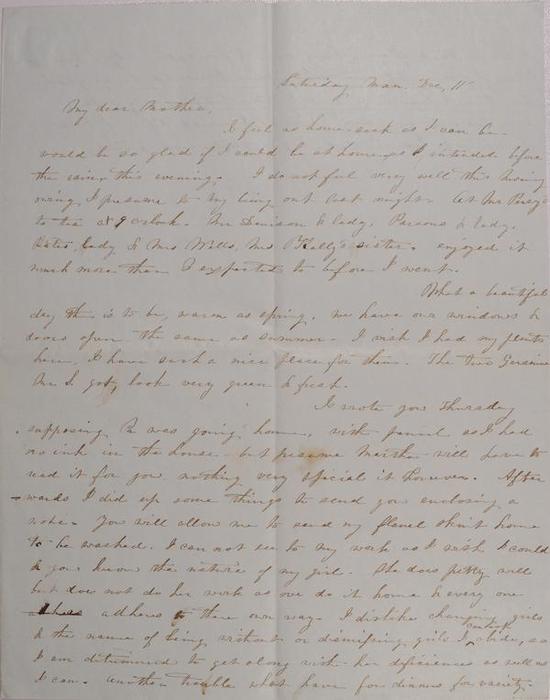 Saturday Morn. Dec. 11
My dear Mother,
I feel as home-sick as I can be
would be so glad if I could be at home as I intended before
the rain this evening. I do not feel very well this morning
owing I presume to my being out last night. At Mr
to tea at 9 o'clock. Mr Denison & lady, Parsons & lady,
lady & Mrs Wells, Mrs Kelly's sister. enjoyed it
much more than I expected to before I went.
What a beautiful
day this is to be, warm as spring. we have our windows &
doors open the same as summer. I wish I had my plants
here, I have such a nice place for them. The two Geraniums
I got, look very green & fresh.
I wrote you Thursday
supposing Pa was going home, with pencil as I had
no ink in the house but presume Martha will have to
read it for you nothing very special it however. After
wards I did up some things to send you enclosing a
note. You will allow me to send my flanel skirt home
to be washed. I can not see to my work as I wish I could
& you know the nature of my girl. She does pretty well
but does not do her work as we do it home & every one
adheres to there own way. I dislike changing girls
& the name of being without or dismissing girls I cannot abide, so
I am determined to get along with her deficiences as well as
I can. Another trouble what have for dinner for variety.